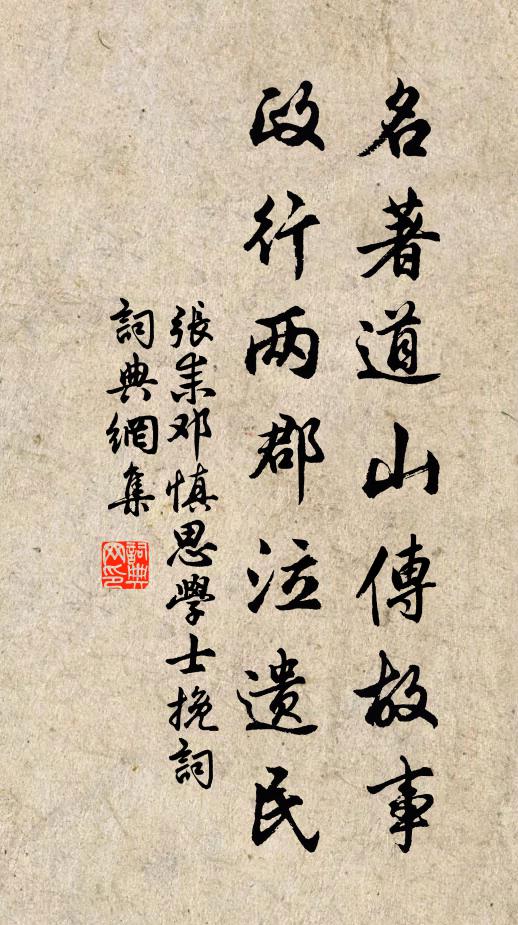 名著道山傳故事
政行两郡泣遗民
張耒邓慎思學士挽詞
詞典網集
詞典网印